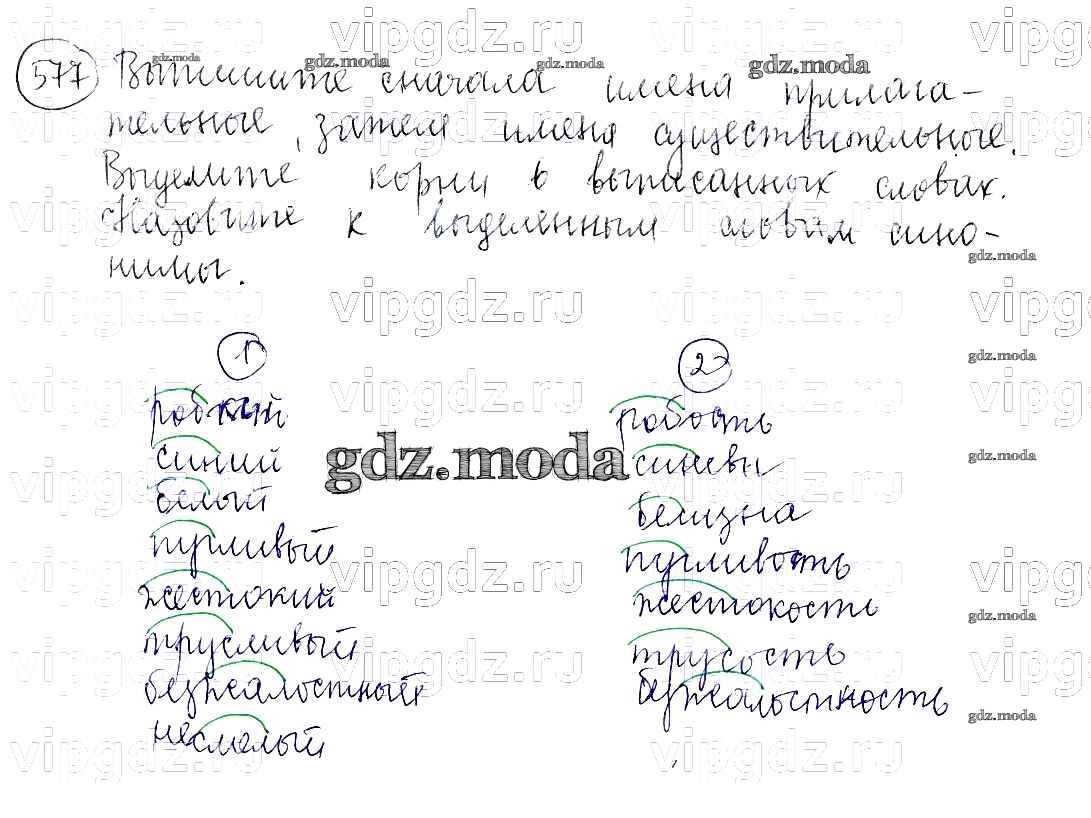 577 Выпишите сначала имена прилага-
тельные, затем имена существительные.
Выделите корни в выписанных словах.
Назовите к выделенным словам сино-
нимы.
1 2
робкий робость
синий синевы
белый белизна
пугливый пугливость
жестокий жестокость
трусливый трусость
безжалостный безжалостность
несмелый
gdz.moda
vipgdz.ru